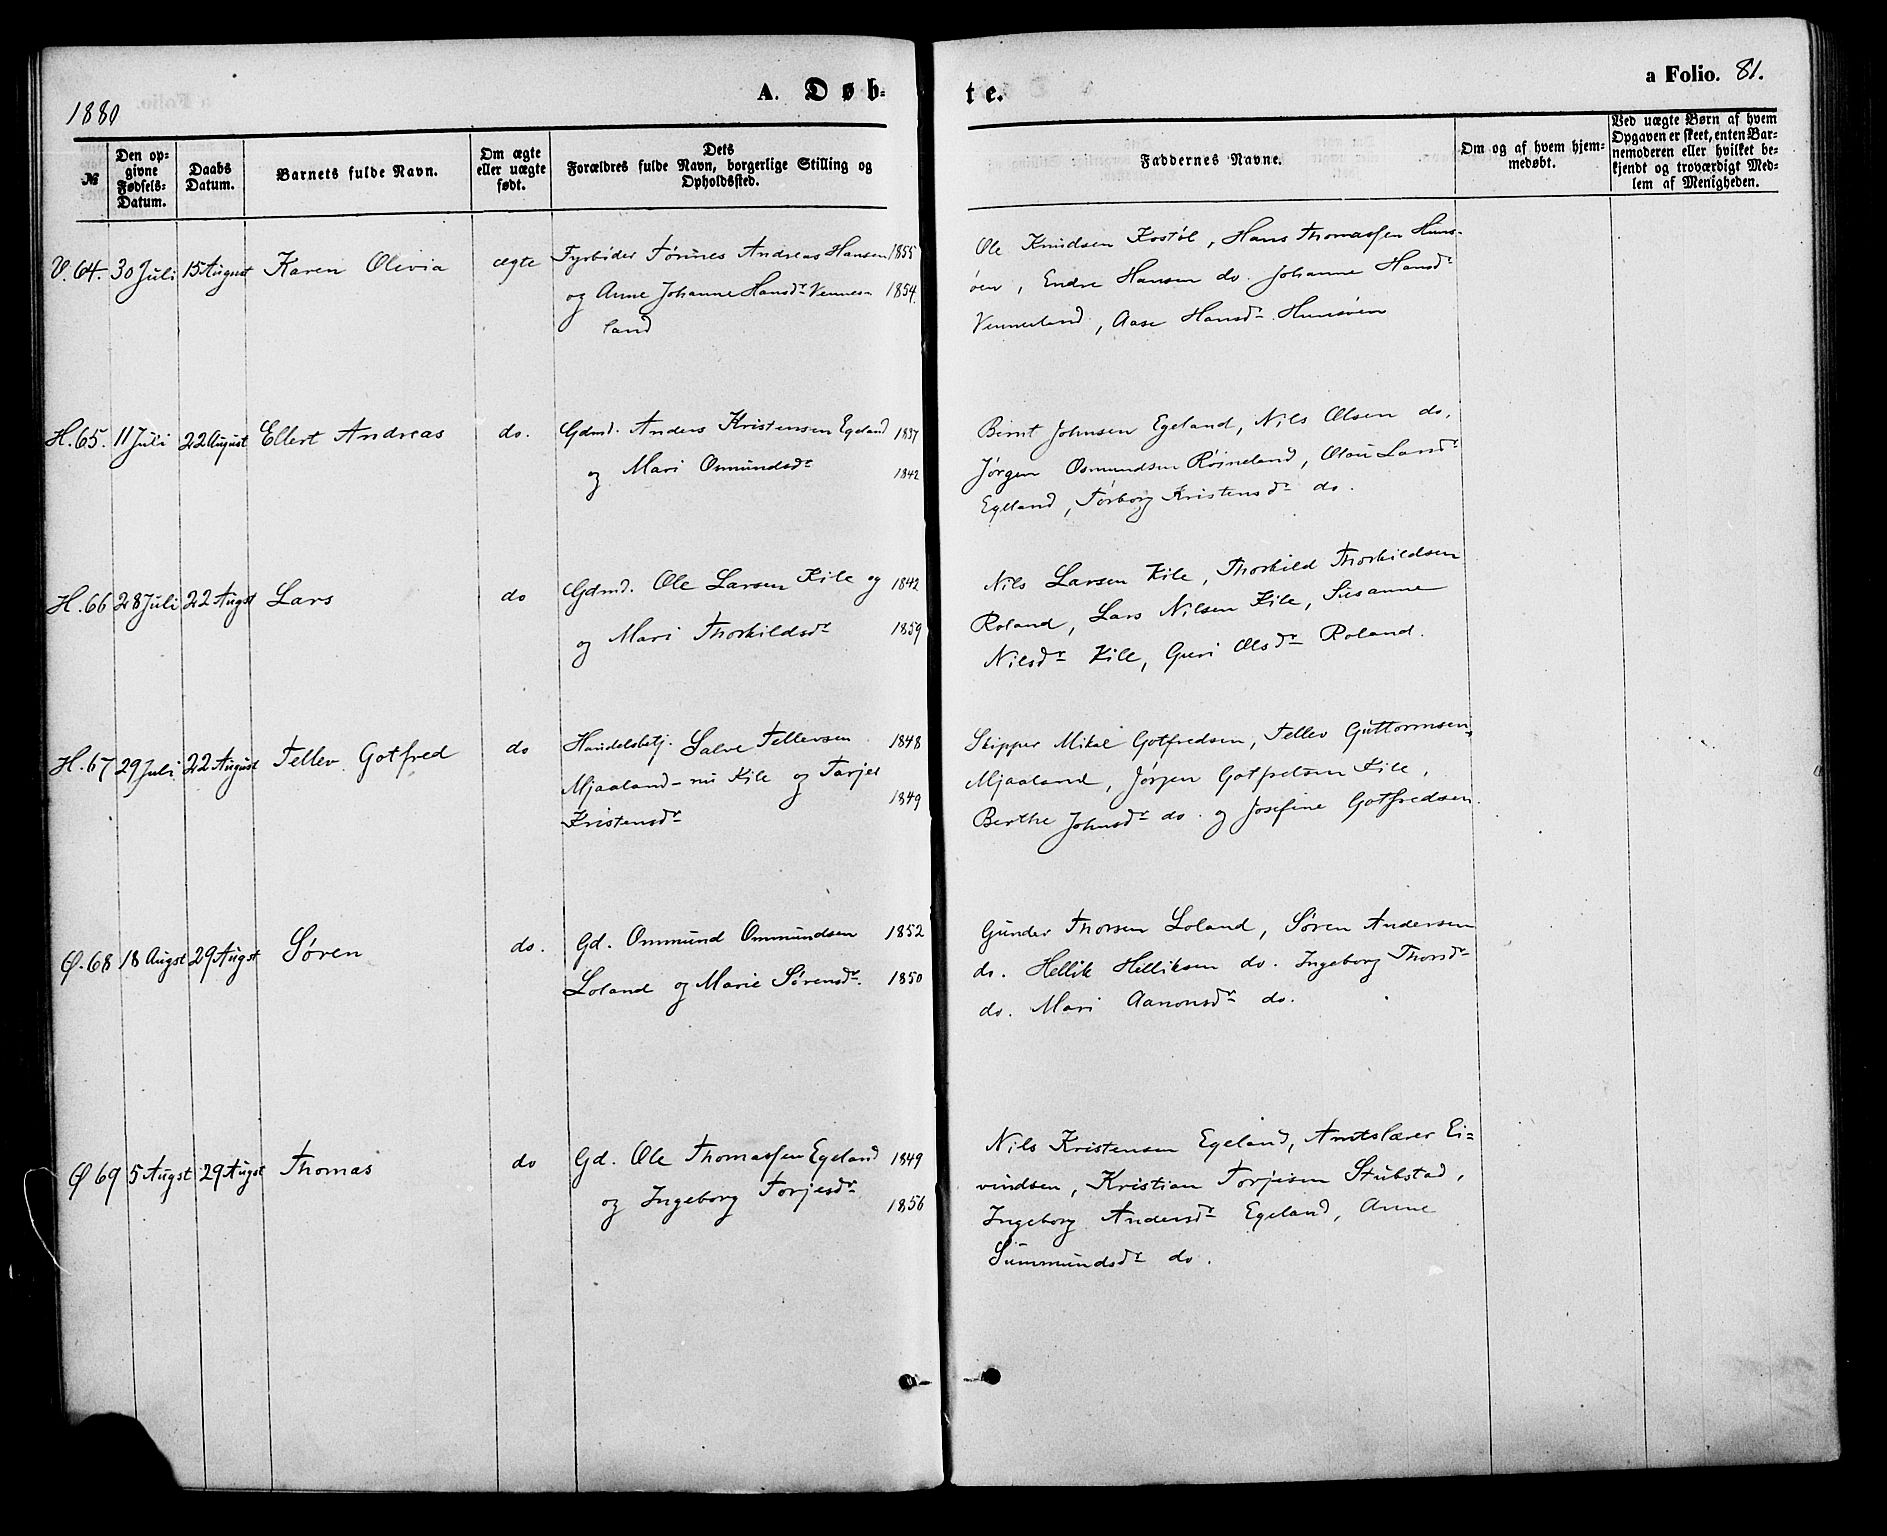 1880
A. Døb-
te.
a Folio. 81.
№
Den op-
givne
Fødsels-
Datum.
Daabs
Datum.
Barnets fulde Navn.
Om ægte
eller uægte
født.
Dets
Forældres fulde Navn, borgerlige Stilling og
Opholdssted.
Faddernes Navne.
Om og af hvem hjem-
medøbt.
Ved uægte Børn af hvem
Opgaven er skeet, enten Bar-
nemoderen eller hvilket be-
kjendt og troværdigt Med-
lem af Menigheden.
V. 64. 30 Juli 15 August Karen Olivia ægte
Fyrbøder Tørrnes Andreas Hansen 1855
og Anne Johanne Hansdr Vennes- 1854
land
Ole Knudsen Kostøl, Hans Thomassen Huns-
øen, Endre Hansen do. Johanne Hansdr
Vennesland, Aase Hansdr Hunsøen
H. 65. 11 Juli 22 August Ellert Andreas do.
Gdmd. Anders Kristensen Egeland 1837
og Mari Osmundsdr 1842
Bernt Johnsen Egeland, Nils Olsen do.
Jørgen Osmundsen Røineland, Olou Larsdr
Egeland, Tørborg Kristensdr do.
H. 66 28 Juli 22 Augst Lars do
Gdmd. Ole Larsen Kile og 1842
og Mari Thorkildsdr 1859
Nils Larsen Kile, Thorkild Thorkildsen
Roland, Lars Nilsen Kile, Susanne
Nilsdr Kile, Guri Olsdr Roland.
H. 67 29 Juli 22 August Tellev Gotfred do
Handelsbetj. Salve Tellevsen 1848
Mjaaland - nu Kile og Tarjer 1849
Kristensdr
Skipper Mikal Gotfredsen, Tellev Guttormsen
Mjaaland, Jørgen Gotfretsen Kile,
Berthe Johnsdr do. og Josefine Gotfredsen.
Ø. 68 18 Augst 29 Augst Søren do.
Gd. Ommund Ommundsen 1852
Loland og Marie Sørensdr. 1850
Gunder Thorsen Loland, Søren Andersen
do. Hellik Helliksen do. Ingeborg Thorsdr
do. Mari Aanonsdr do.
Ø 69 5 Augst 29 Augst Thomas do
Gd. Ole Thomassen Egeland 1849
og Ingeborg Torjesdr 1856
Nils Kristensen Egeland, Amtslærer Ei-
vindsen, Kristian Torjisen Stubstad,
Ingeborg Andersdr Egeland, Anne
Summundsdr do.